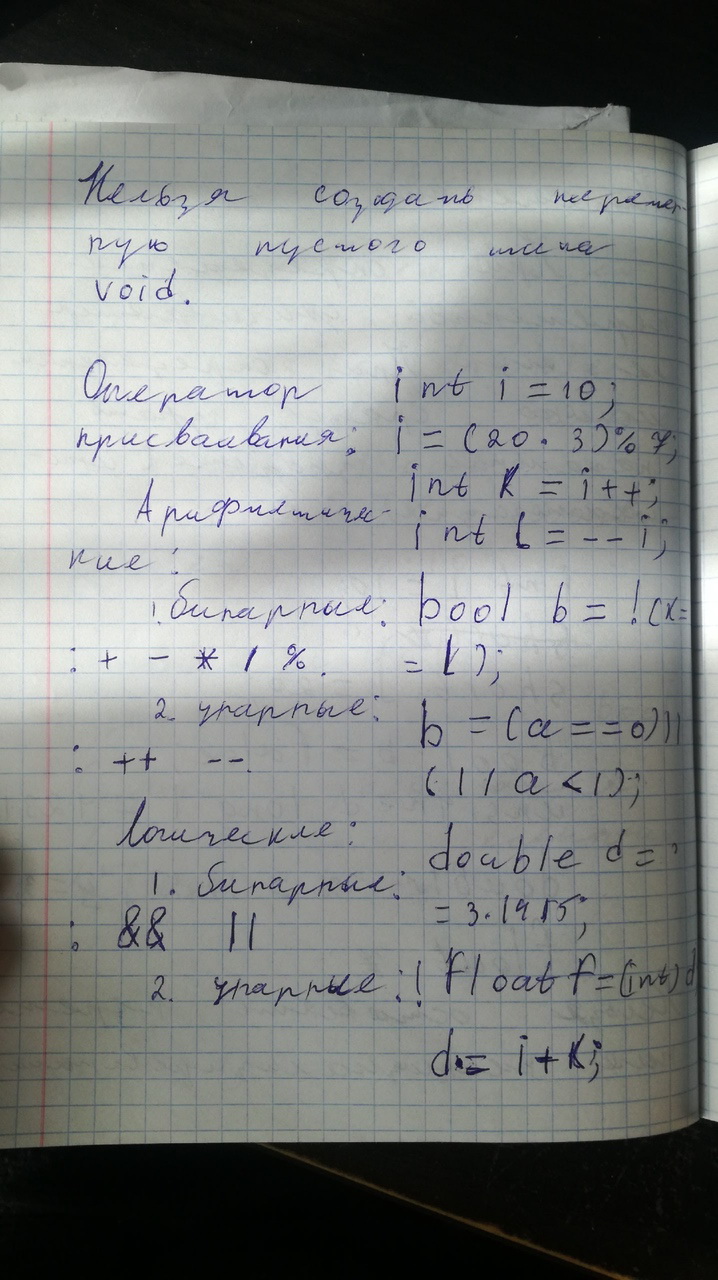 Нельзя создать перемен-
ную пустого типа
void.
Оператор
присваивания:
Арифмптиче-
кие:
1. бинарные:
: + - * / %.
2. унарные:
: ++ --.
Логические:
1. бинарные:
: && ||
2. унарные: !
int i = 10;
i = (20 . 3) % 7;
int k = i++;
int l = --i;
bool b = !(k=
= l);
b = (a == 0) ||
(11 a < 1);
double d =
= 3.1415;
float f = (int) d
d = i + k;